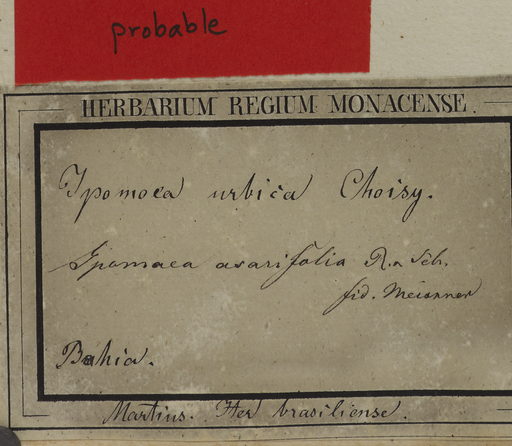 probable
HERBARIUM REGIUM MONACENSE.
Ipomoea urbica Choisy.
Ipomaea asarifolia R. & Sch.
fid. Meissner
Bahia.
Martius. Her brasiliense.